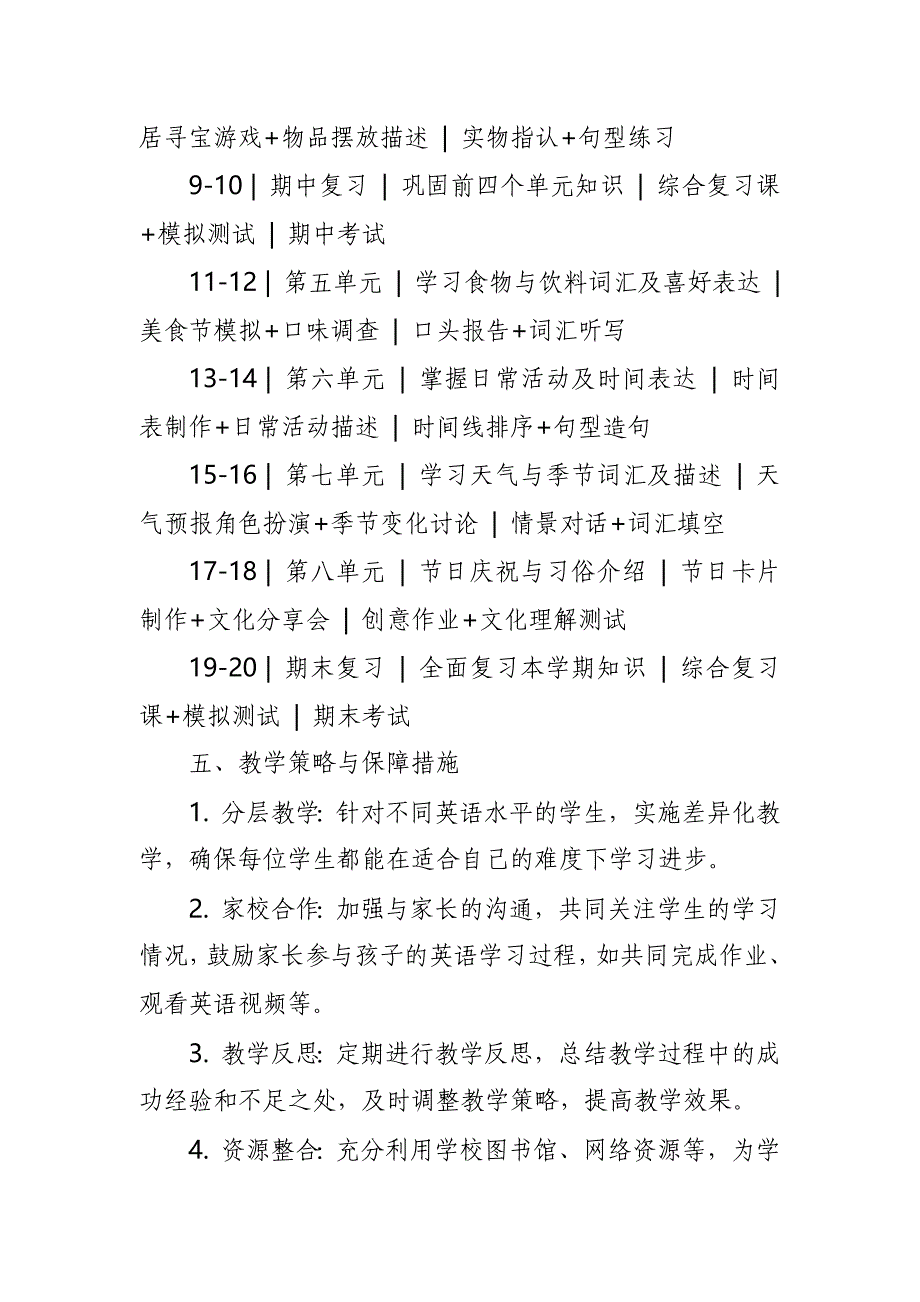 居寻宝游戏+物品摆放描述 | 实物指认+句型练习
9-10 | 期中复习 | 巩固前四个单元知识 | 综合复习课
+模拟测试 | 期中考试
11-12 | 第五单元 | 学习食物与饮料词汇及喜好表达 |
美食节模拟+口味调查 | 口头报告+词汇听写
13-14 | 第六单元 | 掌握日常活动及时间表达 | 时间
表制作+日常活动描述 | 时间线排序+句型造句
15-16 | 第七单元 | 学习天气与季节词汇及描述 | 天
气预报角色扮演+季节变化讨论 | 情景对话+词汇填空
17-18 | 第八单元 | 节日庆祝与习俗介绍 | 节日卡片
制作+文化分享会 | 创意作业+文化理解测试
19-20 | 期末复习 | 全面复习本学期知识 | 综合复习
课+模拟测试 | 期末考试
五、教学策略与保障措施
1. 分层教学: 针对不同英语水平的学生，实施差异化教
学，确保每位学生都能在适合自己的难度下学习进步。
2. 家校合作: 加强与家长的沟通，共同关注学生的学习
情况，鼓励家长参与孩子的英语学习过程，如共同完成作业、
观看英语视频等。
3. 教学反思: 定期进行教学反思，总结教学过程中的成
功经验和不足之处，及时调整教学策略，提高教学效果。
4. 资源整合: 充分利用学校图书馆、网络资源等，为学